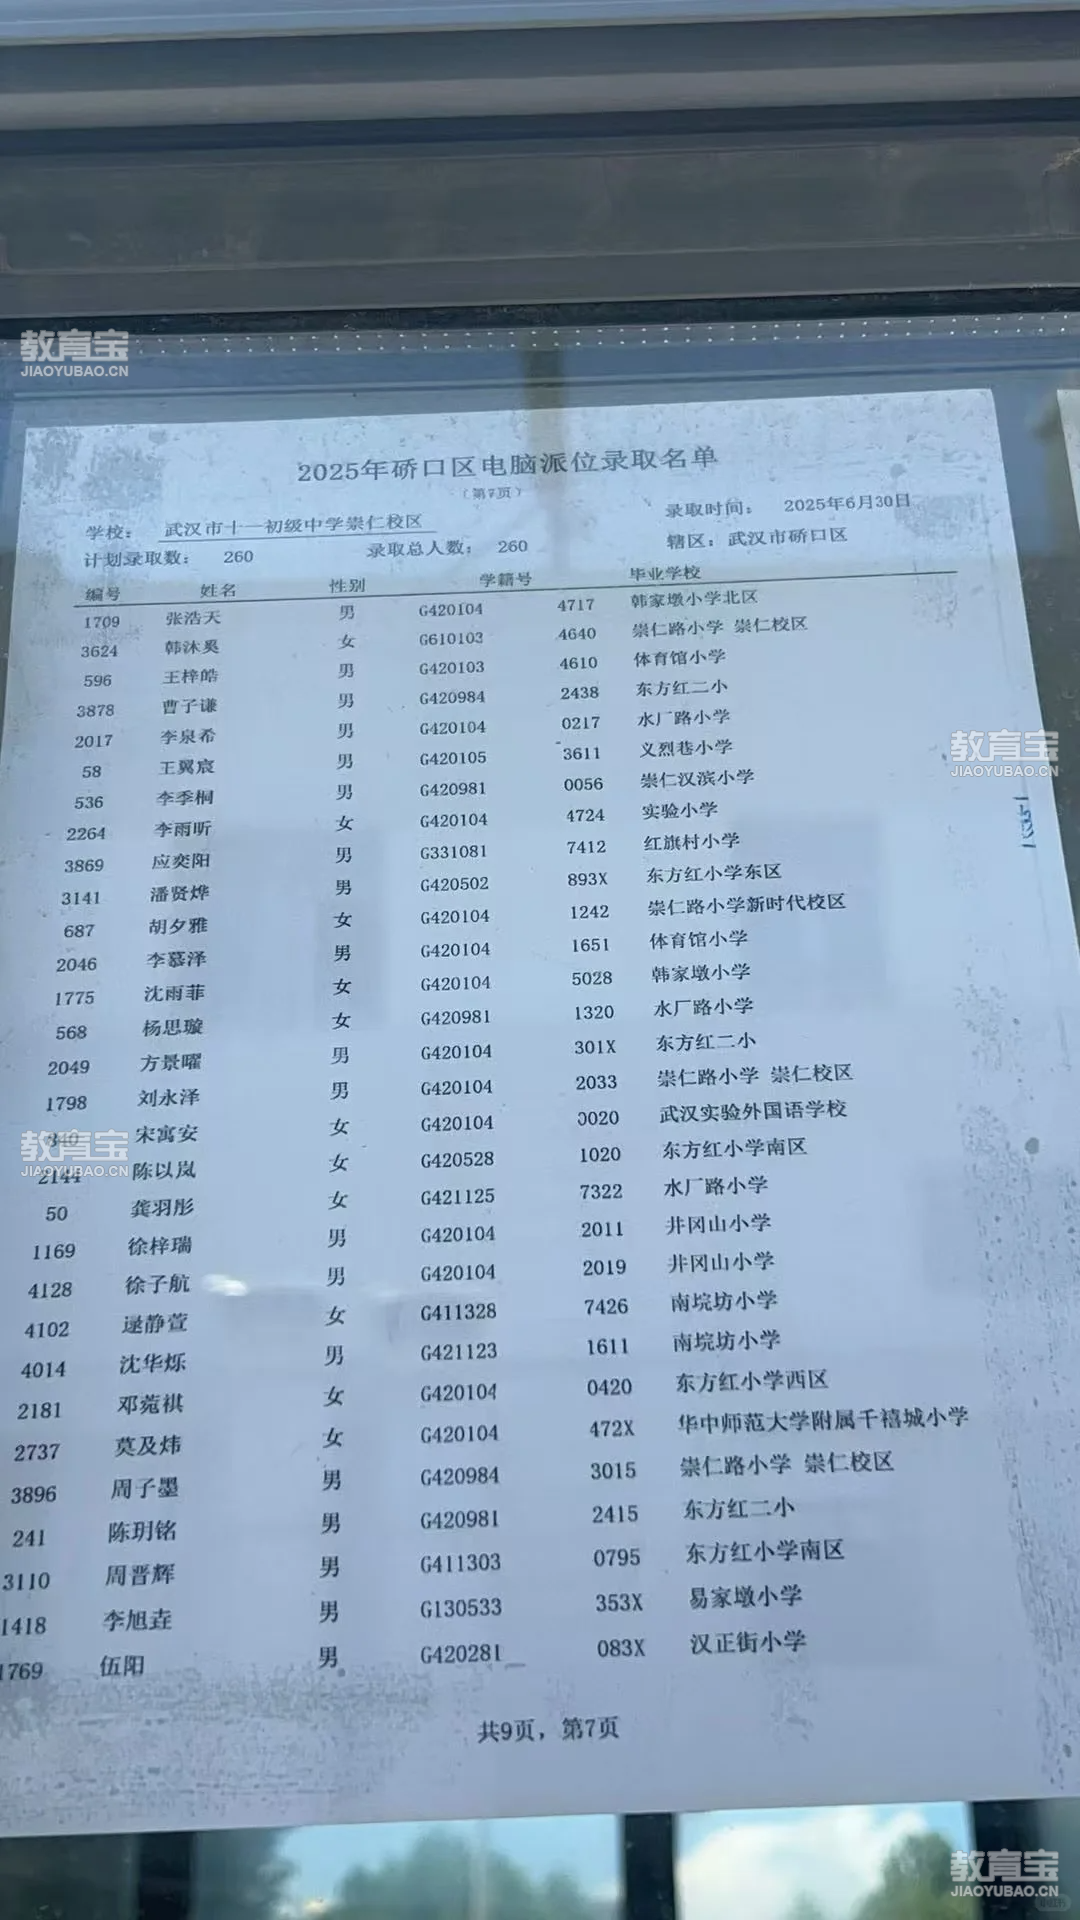 教育宝
JIAOYUBAO.CN
2025年硚口区电脑派位录取名单
(第7页)
学校： 武汉市十一初级中学崇仁校区 录取时间： 2025年6月30日
计划录取数： 260 录取总人数： 260 辖区：武汉市硚口区
编号 姓名 性别 学籍号 毕业学校
1709 张浩天 男 G420104 4717 韩家墩小学北区
3624 韩沐奚 女 G610103 4640 崇仁路小学 崇仁校区
596 王梓皓 男 G420103 4610 体育馆小学
3878 曹子谦 男 G420984 2438 东方红二小
2017 李泉希 男 G420104 0217 水厂路小学
58 王翼宸 男 G420105 3611 义烈巷小学
536 李季桐 男 G420981 0056 崇仁汉滨小学
2264 李雨昕 女 G420104 4724 实验小学
3869 应奕阳 男 G331081 7412 红旗村小学
3141 潘贤烨 男 G420502 893X 东方红小学东区
687 胡夕雅 女 G420104 1242 崇仁路小学新时代校区
2046 李慕泽 男 G420104 1651 体育馆小学
1775 沈雨菲 女 G420104 5028 韩家墩小学
568 杨思璇 女 G420981 1320 水厂路小学
2049 方景曜 男 G420104 301X 东方红二小
1798 刘永泽 男 G420104 2033 崇仁路小学 崇仁校区
宋寓安 女 G420104 0020 武汉实验外国语学校
2144 陈以岚 女 G420528 1020 东方红小学南区
50 龚羽彤 女 G421125 7322 水厂路小学
1169 徐梓瑞 男 G420104 2011 井冈山小学
4128 徐子航 男 G420104 2019 井冈山小学
4102 逯静萱 女 G411328 7426 南垸坊小学
4014 沈华烁 男 G421123 1611 南垸坊小学
2181 邓菀祺 女 G420104 0420 东方红小学西区
2737 莫及炜 女 G420104 472X 华中师范大学附属千禧城小学
3896 周子墨 男 G420984 3015 崇仁路小学 崇仁校区
241 陈玥铭 男 G420981 2415 东方红二小
3110 周晋辉 男 G411303 0795 东方红小学南区
1418 李旭垚 男 G130533 353X 易家墩小学
1769 伍阳 男 G420281 083X 汉正街小学
共9页，第7页
教育宝
JIAOYUBAO.CN
教育宝
JIAOYUBAO.CN
教育宝
JIAOYUBAO.CN